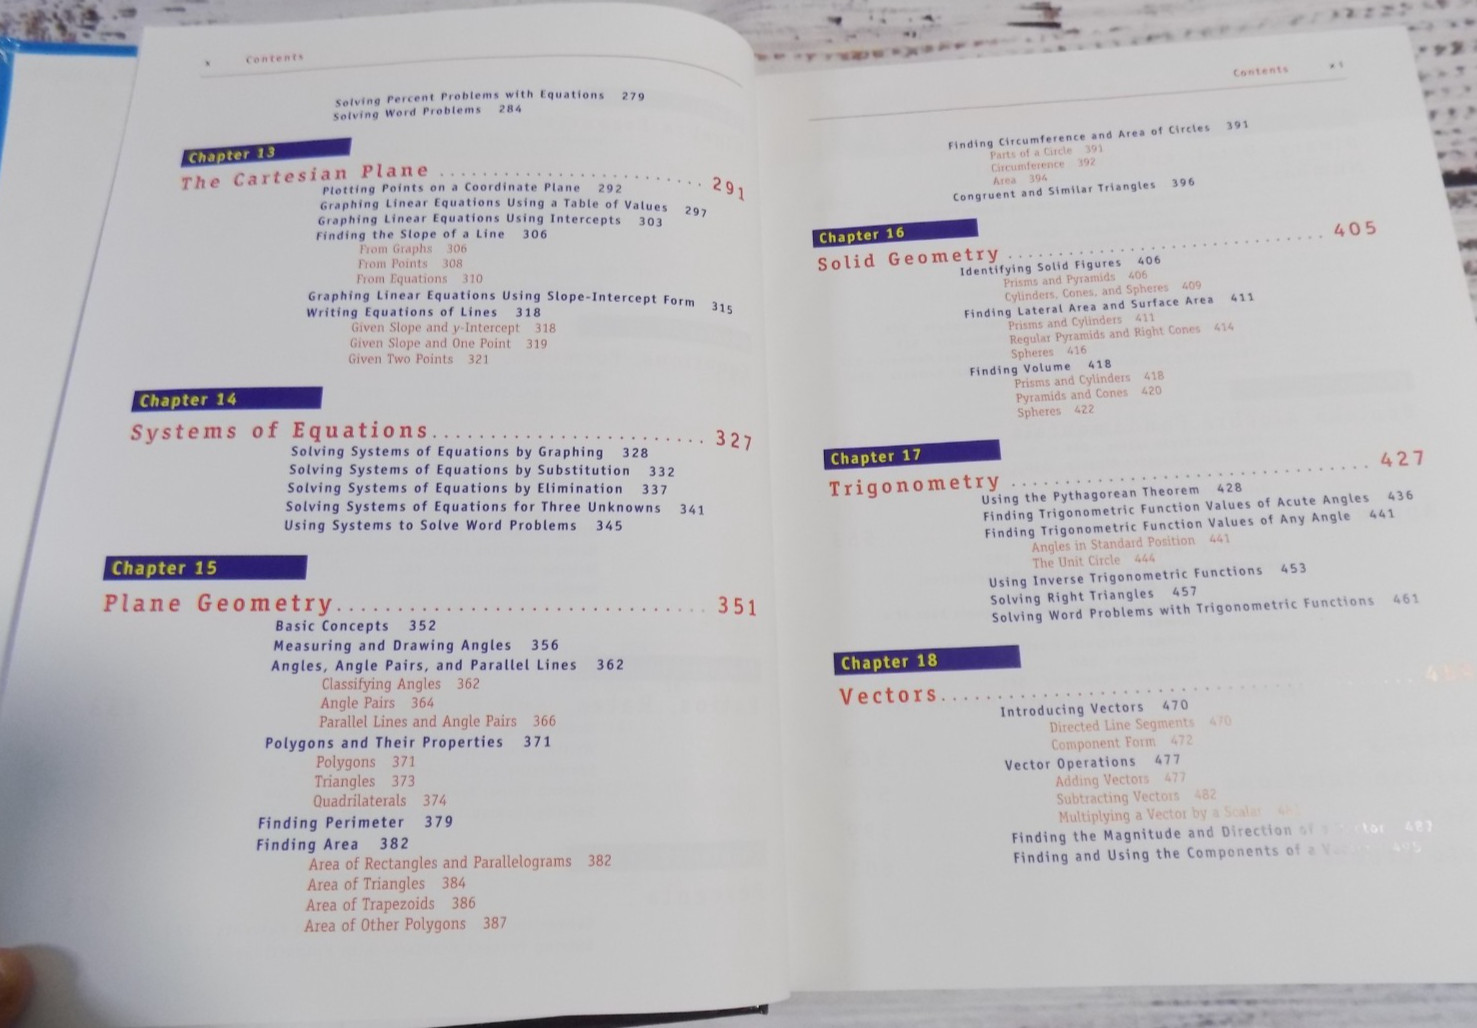 x Contents
Solving Percent Problems with Equations 279
Solving Word Problems 284
Chapter 13
The Cartesian Plane ........................ 291
Plotting Points on a Coordinate Plane 292
Graphing Linear Equations Using a Table of Values 297
Graphing Linear Equations Using Intercepts 303
Finding the Slope of a Line 306
From Graphs 306
From Points 308
From Equations 310
Graphing Linear Equations Using Slope-Intercept Form 315
Writing Equations of Lines 318
Given Slope and y-Intercept 318
Given Slope and One Point 319
Given Two Points 321
Chapter 14
Systems of Equations........................ 327
Solving Systems of Equations by Graphing 328
Solving Systems of Equations by Substitution 332
Solving Systems of Equations by Elimination 337
Solving Systems of Equations for Three Unknowns 341
Using Systems to Solve Word Problems 345
Chapter 15
Plane Geometry................................ 351
Basic Concepts 352
Measuring and Drawing Angles 356
Angles, Angle Pairs, and Parallel Lines 362
Classifying Angles 362
Angle Pairs 364
Parallel Lines and Angle Pairs 366
Polygons and Their Properties 371
Polygons 371
Triangles 373
Quadrilaterals 374
Finding Perimeter 379
Finding Area 382
Area of Rectangles and Parallelograms 382
Area of Triangles 384
Area of Trapezoids 386
Area of Other Polygons 387
Contents xi
Finding Circumference and Area of Circles 391
Parts of a Circle 391
Circumference 392
Area 394
Congruent and Similar Triangles 396
Chapter 16
Solid Geometry ............................ 405
Identifying Solid Figures 406
Prisms and Pyramids 406
Cylinders, Cones, and Spheres 409
Finding Lateral Area and Surface Area 411
Prisms and Cylinders 411
Regular Pyramids and Right Cones 414
Spheres 416
Finding Volume 418
Prisms and Cylinders 418
Pyramids and Cones 420
Spheres 422
Chapter 17
Trigonometry ................................ 427
Using the Pythagorean Theorem 428
Finding Trigonometric Function Values of Acute Angles 436
Finding Trigonometric Function Values of Any Angle 441
Angles in Standard Position 441
The Unit Circle 444
Using Inverse Trigonometric Functions 453
Solving Right Triangles 457
Solving Word Problems with Trigonometric Functions 461
Chapter 18
Vectors........................................
Introducing Vectors 470
Directed Line Segments 470
Component Form 472
Vector Operations 477
Adding Vectors 477
Subtracting Vectors 482
Multiplying a Vector by a Scalar
Finding the Magnitude and Direction of 487
Finding and Using the Components of a 495